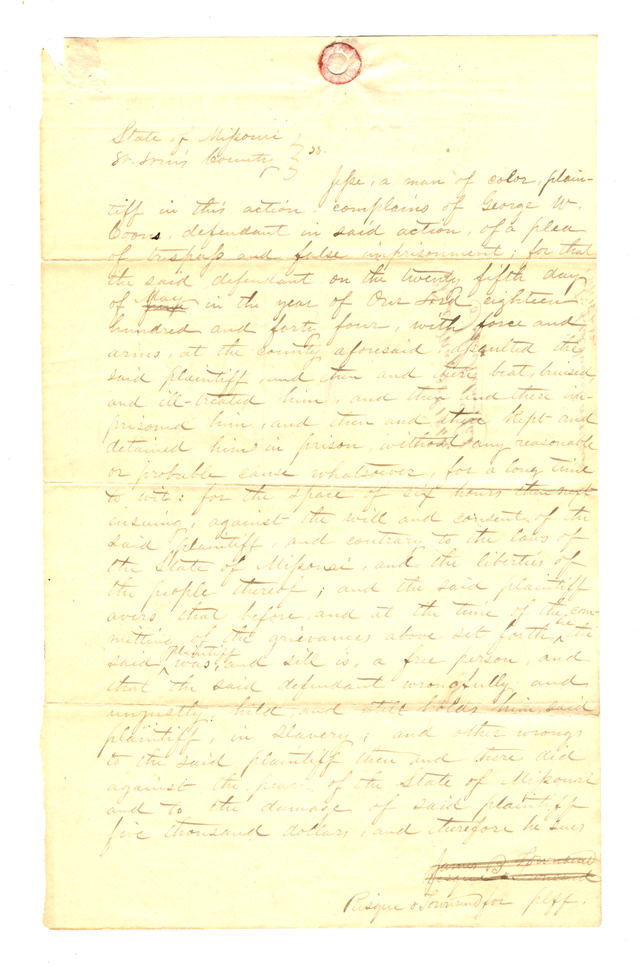 State of Missouri
St. Louis County } ss.
Jesse, a man of color, plain-
tiff in this action, complains of George W.
Coons, defendant in said action, of a plea
of trespass and false imprisonment; for that
the said defendant on the twenty fifth day
of May in the year of Our Lord eighteen
hundred and forty four, with force and
arms, at the county aforesaid, assaulted the
said plaintiff, and then and there beat, bruised,
and ill-treated him, and then and there im-
prisoned him, and then and there kept and
detained him in prison, without any reasonable
or probable cause whatsoever, for a long time
to wit: for the space of six hours then next
ensuing, against the will and consent of the
said plaintiff, and contrary to the laws of
the State of Missouri, and the liberties of
the people thereof; and the said plaintiff
avers that before, and at the time of the com-
mitting of the grievances above set forth he the
said plaintiff was, and still is, a free person, and
that the said defendant wrongfully and
unjustly held and still holds him, said
plaintiff, in slavery; and other wrongs
to the said plaintiff then and there did
against the peace of the State of Missouri
and to the damage of said plaintiff
five thousand dollars, and therefore he sues
James B Townsend
Risque & Townsend for plff.